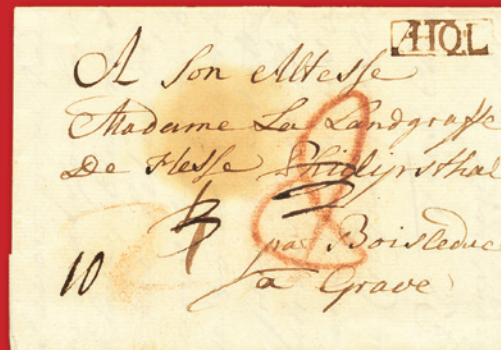 AHOL
A Son Altesse
Madame La Landgrafe
De Hesse Philipsthal
par Boisleduc
10
a Grave